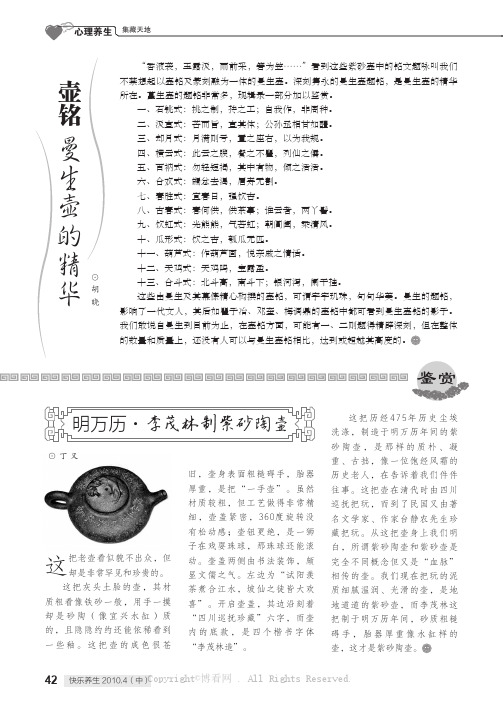 心理养生 集藏天地
壶铭
曼生壶的精华
⊙胡晓
“香液衮，玉露汲，雨前采，箬为笠……”看到这些紫砂壶中的铭文题咏叫我们
不禁想起以壶铭及篆刻融为一体的曼生壶。深刻隽永的曼生壶题铭，是曼生壶的精华
所在。曼生壶的题铭非常多，现辑录一部分加以鉴赏。
一、石铫式：铫之制，抟之工；自我作，非周种。
二、汲直式：苦而旨，直其体；公孙丞相甘如醴。
三、却月式：月满则亏，置之座右，以为我规。
四、横云式：此云之腴，餐之不臞，列仙之儒。
五、百衲式：勿轻短褐，其中有物，倾之活活。
六、合欢式：蠲忿去渴，眉寿无割。
七、春胜式：宜春日，强饮吉。
八、古春式：春何供，供茶事；谁云者，两丫髻。
九、饮虹式：光熊熊，气若虹；朝阊阖，乘清风。
十、瓜形式：饮之吉，瓠瓜无匹。
十一、葫芦式：作葫芦画，悦亲戚之情话。
十二、天鸡式：天鸡鸣，宝露盈。
十三、合斗式：北斗高，南斗下；银河泻，阑干挂。
这些由曼生及其幕僚精心构撰的壶铭，可谓字字玑珠，句句华美。曼生的题铭，
影响了一代文人，其后如瞿子冶、邓奎、梅调鼎的壶铭中都可看到曼生壶铭的影子。
我们敢说自曼生到目前为止，在壶铭方面，可能有一、二则题得精辟深刻，但在整体
的数量和质量上，还没有人可以与曼生壶铭相比，达到或超越其高度的。
鉴赏
明万历·李茂林制紫砂陶壶
⊙丁又
这把老壶看似貌不出众，但
却是非常罕见和珍贵的。
这把灰头土脸的壶，其材
质粗看像铁砂一般，用手一摸
却是砂陶（像宜兴水缸）质
的，且隐隐约约还能依稀看到
一些釉。这把壶的成色很苍
旧，壶身表面粗糙碍手，胎器
厚重，是把“一手壶”。虽然
材质较粗，但工艺做得非常精
细，壶盖紧密，360度旋转没
有松动感；壶钮更绝，是一狮
子在戏耍珠球，那珠球还能滚
动。壶盖两侧由书法装饰，颇
显文儒之气。左边为“试阳羡
茶煮合江水，坡仙之徒皆大欢
喜”。开启壶盖，其边沿刻着
“四川巡抚珍藏”六字，而壶
内的底款，是四个楷书字体
“李茂林造”。
这把历经475年历史尘埃
洗涤，制造于明万历年间的紫
砂陶壶，是那样的质朴、凝
重、古拙，像一位饱经风霜的
历史老人，在告诉着我们件件
往事。这把壶在清代时由四川
巡抚把玩，而到了民国又由著
名文学家、作家台静农先生珍
藏把玩。从这把壶身上我们明
白，所谓紫砂陶壶和紫砂壶是
完全不同概念但又是“血脉”
相传的壶。我们现在把玩的泥
质细腻温润、光滑的壶，是地
地道道的紫砂壶，而李茂林这
把制于明万历年间，砂质粗糙
碍手，胎器厚重像水缸样的
壶，这才是紫砂陶壶。
42 快乐养生 2010.4（中） Copyright©博看网 . All Rights Reserved.